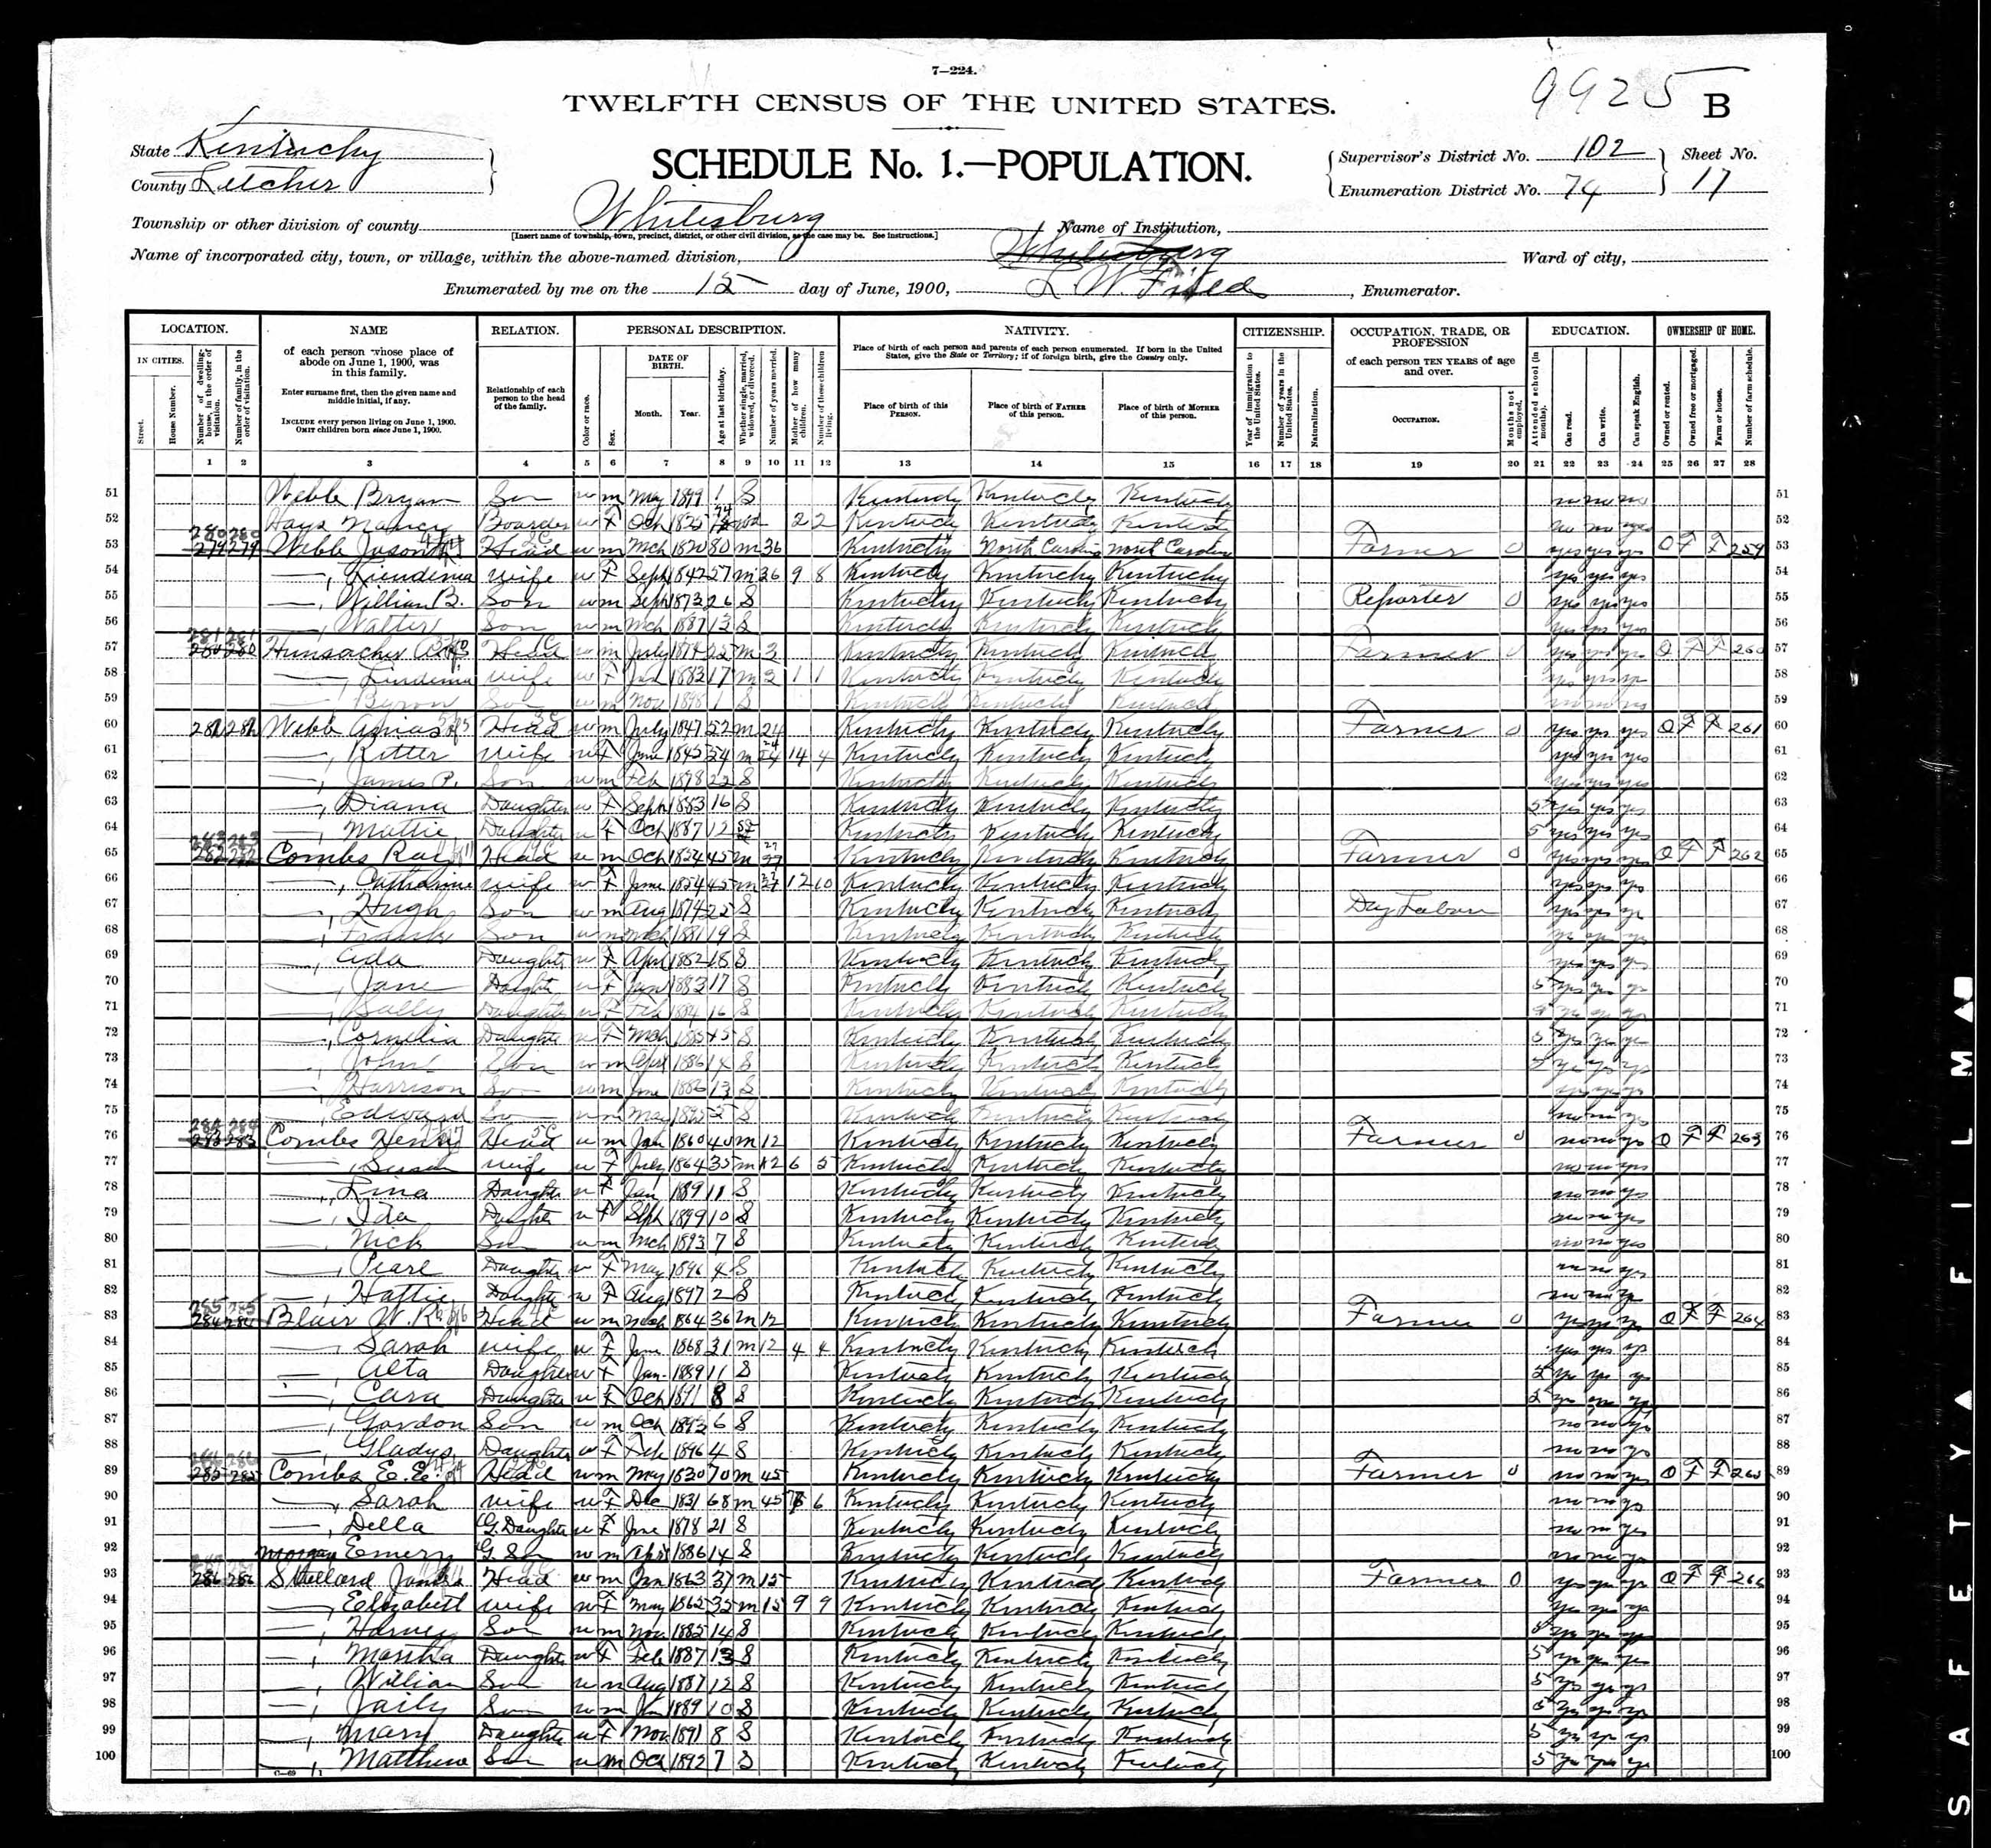 7—224.
9925 B
TWELFTH CENSUS OF THE UNITED STATES.
State Kentucky
County Letcher
SCHEDULE No. 1.—POPULATION.
Supervisor's District No. 102
Enumeration District No. 74
Sheet No. 17
Township or other division of county Whitesburg
[Insert name of township, town, precinct, district, or other civil division, as the case may be. See instructions.]
Name of Institution,
Name of incorporated city, town, or village, within the above-named division, Whitesburg
Ward of city,
Enumerated by me on the 15 day of June, 1900, L. W. , Enumerator.
LOCATION. NAME RELATION. PERSONAL DESCRIPTION. NATIVITY. CITIZENSHIP. OCCUPATION, TRADE, OR PROFESSION EDUCATION. OWNERSHIP OF HOME.
IN CITIES.
Street.
House Number.
Number of dwelling-house, in the order of visitation.
Number of family, in the order of visitation.
of each person whose place of abode on June 1, 1900, was in this family.
Enter surname first, then the given name and middle initial, if any.
INCLUDE every person living on June 1, 1900.
OMIT children born since June 1, 1900.
Relationship of each person to the head of the family.
Color or race.
Sex.
DATE OF BIRTH.
Month. Year.
Age at last birthday.
Whether single, married, widowed, or divorced.
Number of years married.
Mother of how many children.
Number of these children living.
Place of birth of each person and parents of each person enumerated. If born in the United States, give the State or Territory; if of foreign birth, give the Country only.
Place of birth of this PERSON.
Place of birth of FATHER of this person.
Place of birth of MOTHER of this person.
Year of immigration to the United States.
Number of years in the United States.
Naturalization.
of each person TEN YEARS of age and over.
OCCUPATION.
Months not employed.
Attended school (in months).
Can read.
Can write.
Can speak English.
Owned or rented.
Owned free or mortgaged.
Farm or house.
Number of farm schedule.
1 2 3 4 5 6 7 8 9 10 11 12 13 14 15 16 17 18 19 20 21 22 23 24 25 26 27 28
51 Webb Bryan Son w m May 1899 1 S Kentucky Kentucky Kentucky no no no 51
52 Hays Nancy Boarder w F Oct 1825 74 Wd 2 2 Kentucky Kentucky Kentucky no no yes 52
53 280 280 Webb Jason Head w m Mch 1820 80 m 36 Kentucky North Carolina North Carolina Farmer 0 yes yes yes O F F 259 53
54 wife w F Sept 1842 57 m 36 9 8 Kentucky Kentucky Kentucky yes yes yes 54
55 William B. Son w m Sept 1873 26 S Kentucky Kentucky Kentucky Reporter 0 yes yes yes 55
56 Walter Son w m Mch 1887 13 S Kentucky Kentucky Kentucky yes yes yes 56
57 281 281 Head w m July 1874 25 m 3 Kentucky Kentucky Kentucky Farmer yes yes yes O F F 260 57
58 wife w F 1883 17 m 3 1 1 Kentucky Kentucky Kentucky yes yes yes 58
59 Byron Son w m Nov 1898 1 S Kentucky Kentucky Kentucky no no no 59
60 Webb Head w m July 1847 52 m 24 Kentucky Kentucky Kentucky Farmer 0 yes yes yes O F F 261 60
61 Ritter wife w F June 1845 54 m 24 14 4 Kentucky Kentucky Kentucky yes yes yes 61
62 James P. Son w m Feb 1878 22 S Kentucky Kentucky Kentucky yes yes yes 62
63 Diana Daughter w F Sept 1883 16 S Kentucky Kentucky Kentucky 5 yes yes yes 63
64 Mattie Daughter w F Oct 1887 12 S Kentucky Kentucky Kentucky 5 yes yes yes 64
65 283 283 Combs Head w m Oct 1854 45 m 27 Kentucky Kentucky Kentucky Farmer 0 yes yes yes O F F 262 65
66 Catharine wife w F June 1854 45 m 27 12 10 Kentucky Kentucky Kentucky yes yes yes 66
67 Hugh Son w m Aug 1874 25 S Kentucky Kentucky Kentucky Day Labor yes yes ye 67
68 Son w m Mch 1881 19 S Kentucky Kentucky Kentucky 68
69 Ada Daughter w F April 1882 18 S Kentucky Kentucky Kentucky yes yes yes 69
70 Jane Daughter w F Jan 1883 17 S Kentucky Kentucky Kentucky 5 yes yes yes 70
71 Sally Daughter w F Feb 1884 16 S Kentucky Kentucky Kentucky 71
72 Cornelia Daughter w F Mch 1885 15 S Kentucky Kentucky Kentucky 5 yes yes yes 72
73 John Son w m April 1886 14 S Kentucky Kentucky Kentucky 5 ye yes yes 73
74 Harrison Son w m June 1886 13 S Kentucky Kentucky Kentucky yes yes yes 74
75 Edward Son w m May 1895 5 S Kentucky Kentucky Kentucky no no 75
76 284 284 Combs Henry Head w m Jan 1860 40 m 12 Kentucky Kentucky Kentucky Farmer 0 no no yes O F F 263 76
77 Susan wife w F July 1864 35 m 12 6 5 Kentucky Kentucky Kentucky no no yes 77
78 Lina Daughter w F Jan 1889 11 S Kentucky Kentucky Kentucky no no yes 78
79 Ida Daughter w F Sept 1899 10 S Kentucky Kentucky Kentucky no no yes 79
80 Nick Son w m Mch 1893 7 S Kentucky Kentucky Kentucky no no yes 80
81 Pearl Daughter w F May 1896 4 S Kentucky Kentucky Kentucky no no yes 81
82 Hattie Daughter w F Aug 1897 2 S Kentucky Kentucky Kentucky no no 82
83 285 285 Blair W. R. Head w m Mch 1864 36 m 12 Kentucky Kentucky Kentucky Farmer 0 yes yes yes O F F 264 83
84 Sarah wife w F June 1868 31 m 12 4 4 Kentucky Kentucky Kentucky yes yes yes 84
85 Alta Daughter w F Jan 1889 11 S Kentucky Kentucky Kentucky 5 yes yes yes 85
86 Cara Daughter w F Oct 1891 8 S Kentucky Kentucky Kentucky 5 yes 86
87 Gordon Son w m Oct 1893 6 S Kentucky Kentucky Kentucky no no yes 87
88 Gladys Daughter w F Feb 1896 4 S Kentucky Kentucky Kentucky no no yes 88
89 286 286 Combs E. E. Head w m May 1830 70 m 45 Kentucky Kentucky Kentucky Farmer 0 no no yes O F F 265 89
90 Sarah wife w F Dec 1831 68 m 45 6 Kentucky Kentucky Kentucky no no yes 90
91 Della G. Daughter w F June 1878 21 S Kentucky Kentucky Kentucky no no yes 91
92 Morgan Emery G. Son w m April 1886 14 S Kentucky Kentucky Kentucky no no 92
93 286 286 Stallard James Head w m Jan 1863 37 m 15 Kentucky Kentucky Kentucky Farmer 0 yes yes yes O F F 266 93
94 Elizabeth wife w F May 1865 35 m 15 9 9 Kentucky Kentucky Kentucky yes yes yes 94
95 Harvey Son w m Nov 1885 14 S Kentucky Kentucky Kentucky yes yes yes 95
96 Martha Daughter w F Feb 1887 13 S Kentucky Kentucky Kentucky 5 yes yes yes 96
97 William Son w m Aug 1887 12 S Kentucky Kentucky Kentucky 5 yes yes yes 97
98 Son w m 1889 10 S Kentucky Kentucky Kentucky yes yes yes 98
99 Mary Daughter w F Nov 1891 8 S Kentucky Kentucky Kentucky 5 yes yes yes 99
100 Matthew Son w m Oct 1892 7 S Kentucky Kentucky Kentucky 5 yes yes ye 100
SAFETY FILM